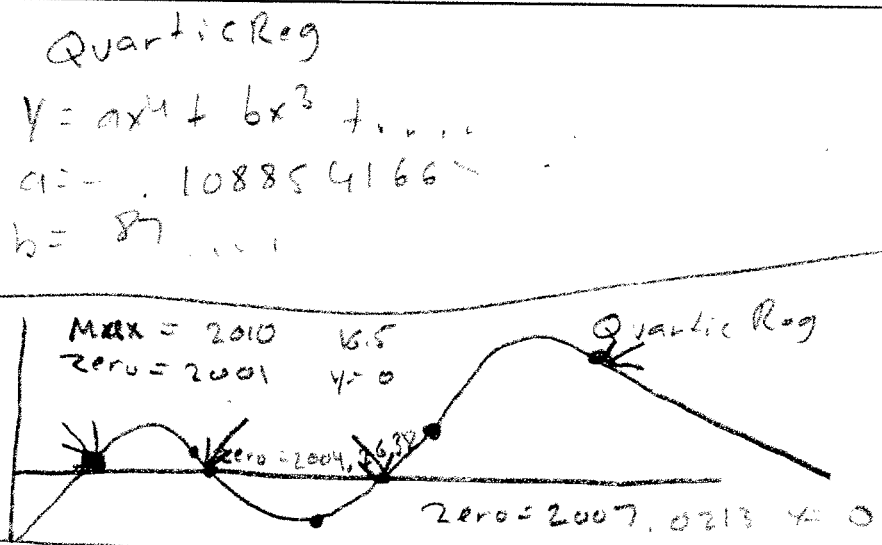 QuarticReg
y = ax⁴ + bx³ + . . . .
a = - .108854166
b = 87 . . . .
Max = 2010 16.5
Zero = 2001 y = 0
Quartic Reg
Zero = 2007.0213 y = 0